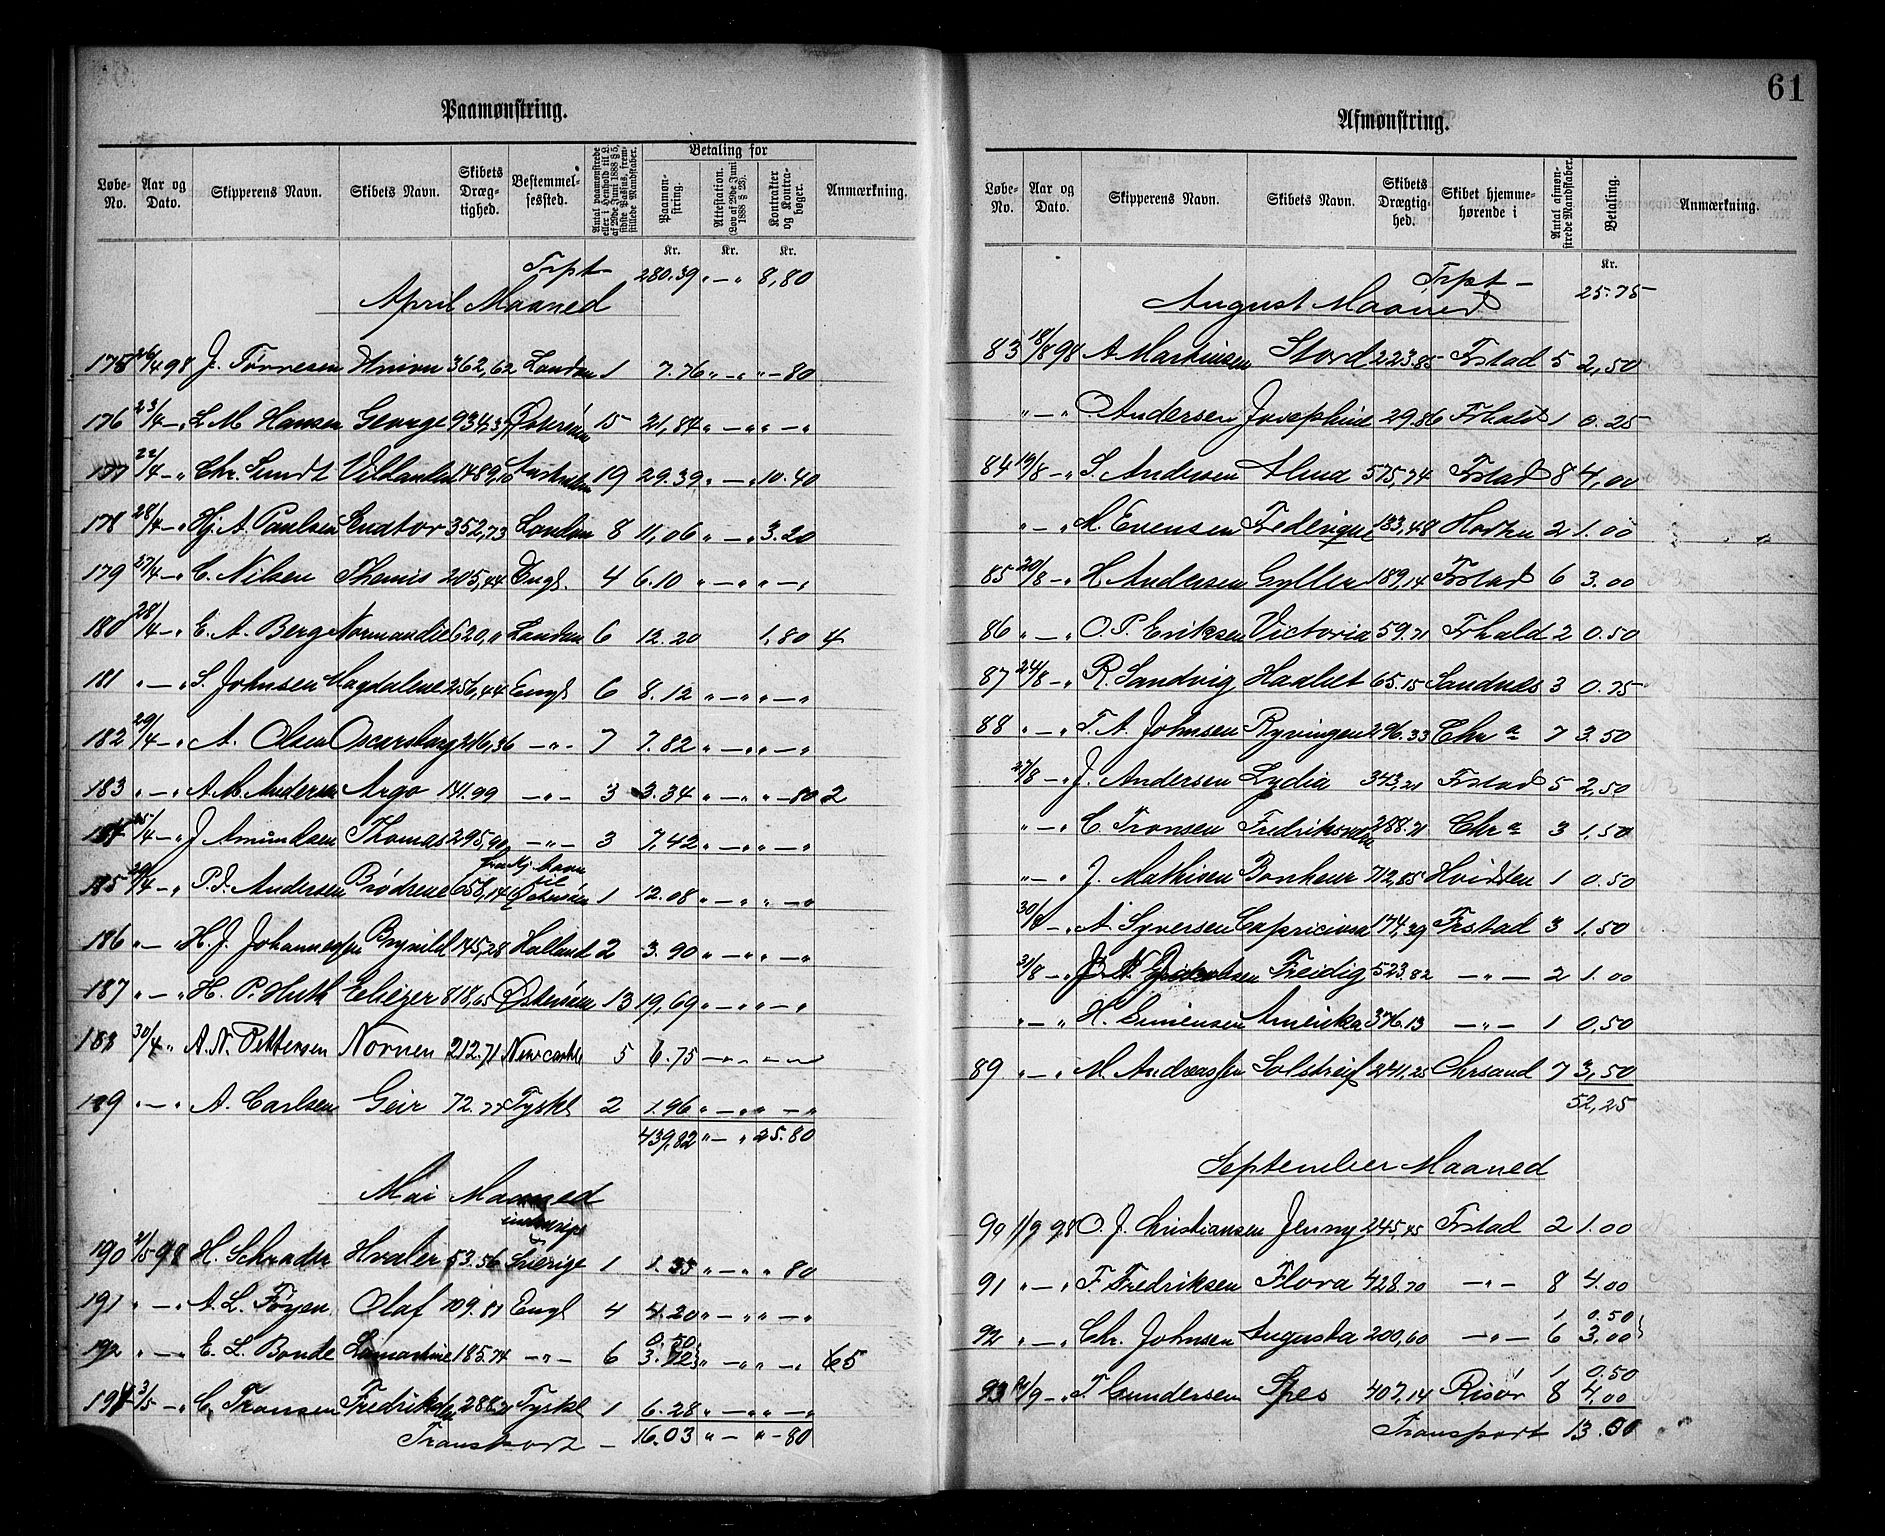 Paamønstring.
Løbe-No. Aar og Dato. Skipperens Navn. Skibets Navn. Skibets Dræg-tighed. Bestemmel-sessted. Antal paamønstrede eller i Henhold til L. af 29de Juni 1888 § 5, sidste Passus, frem-stillede Mandskaber. Betaling for Paamøn-string. Attestation. (Lov af 29de Juni 1888 § 25). Kontrakter og Kontra-bøger. Anmærkning.
Kr. Kr. Kr.
Trpt — 280.39 „ — „ 8,80
April Maaned
175 26/4 98 J. Tørresen Union 362,62 London 1 7.76 „ — „ „ — 80
176 23/4 — „ L M Hansen George 934,37 Østersøen 15 21,84 „ — „ „ — „
177 22/4 — „ Chr. Sundt 1489,10 19 29.39 „ — „ 10.40
178 28/4 — „ Hj. A. Paulsen 352,73 London 8 11,06 „ — „ 3.20
179 27/4 — „ C. Nilsen Themis 205,44 Engl. 4 6.10 „ — „ „ — „
180 28/4 — „ E. A. Berg Normandie 620,11 London 6 12.20 1,80 4
181 „ — „ S. Johnsen Magdalene 256,44 Engl 6 8.12 „ — „ „ — „
182 29/4 — „ A. Olsen Oscarsborg 246,36 — „ — 7 7.82 „ — „ „ — „
183 „ — „ A. M. Andersen Argo 141.99 — „ — 3 3.34 „ — „ „ — 80 2
184 25/4 — „ J Amundsen Thomas 295,90 — „ — 3 7,42 „ — „ „ — „
185 29/4 — „ P. I. Andersen Brødrene 658,14 til Østersøen 1 12.08 „ — „ „ — „
186 „ — „ H. J. Johannessen Brynild 145,28 Holland 2 3.90 „ — „ „ — „
187 „ — „ H. P. Huth Eliezer 818,65 Østersøen 13 19,69 „ — „ „ — „
188 30/4 „ A. N. Pettersen Nornen 212.71 Newcastle 5 6.75 — „ — „ — „
189 „ — „ A. Carlsen Geir 72.78 Tyskl 2 1.96 „ — „ „ — „
439,82 „ — „ 25.80
Mai Maaned
190 2/5 98 H. Schrøder Hvaler 53.56 indenrigs Sverige 1 1.35 „ — „ „ 80
191 „ — „ A. L. Føyen Olaf 109.81 Engl 4 4.20 „ — „ „ — „
192 „ — „ E. L. Bonde Lamartine 185.74 — „ — 6 0,50 3.72 „ — „ „ — „ 65
194 3/5 — „ C. Fronsen 288.71 Tyskl 1 6.28 „ — „ „ — „
Transport — 16.03 „ — „ — 80
61
Afmønstring.
Løbe-No. Aar og Dato. Skipperens Navn. Skibets Navn. Skibets Drægtig-hed. Skibet hjemme-hørende i Antal afmøn-strede Mandskaber. Betaling. Anmærkning.
Kr.
Trpt — 25.75
August Maaned
83 18/8 98 A Martinsen Stord 223.85 Frstad 5 2,50
„ — „ Andersen Josephine 29.86 Frhald 1 0.25
84 19/8 — „ S. Andersen Alma 575,74 Frstad 8 4,00
„ — „ M. Evensen 183,48 Horten 2 1.00
85 20/8 — „ H Andersen Gyller 189,14 Frstad 6 3.00
86 „ — „ O. P. Eriksen Victoria 59.71 Frhald 2 0.50
87 24/8 — „ R. Sandvig Haabet 65.15 Sandnes 3 0.75
88 „ — „ T. A. Johnsen Ryvingen 296.33 Chra 7 3.50
27/8 — „ J. Andersen Lydia 343,21 Frstad 5 2,50
„ — „ C. Fronsen 288.71 Chra 3 1,50
„ — „ J. Mathisen Bonheur 712,85 Hvidsten 1 0.50
30/8 — „ A. Syversen Capricieuse 174,39 Frstad 3 1,50
31/8 — „ Jacobsen Freidig 523.82 — „ — 2 1.00
„ — „ H. Simensen Amerika 376.13 — „ — 1 0.50
89 „ — „ M. Andreassen Solstreif 241,25 Chrsand 7 3,50
52,25
September Maaned
90 1/9 98 O. J. Kristiansen Jenny 245,45 Frstad 2 1.00
91 „ — „ F. Fredriksen Flora 428.70 — „ — 8 4.00
1 0.50
92 „ — „ Chr. Johnsen Augusta 200,60 — „ — 6 3,00
1 0.50
93 2/9 — „ T Gundersen Spes 407,14 Risør 8 4,00
Transport 13.00